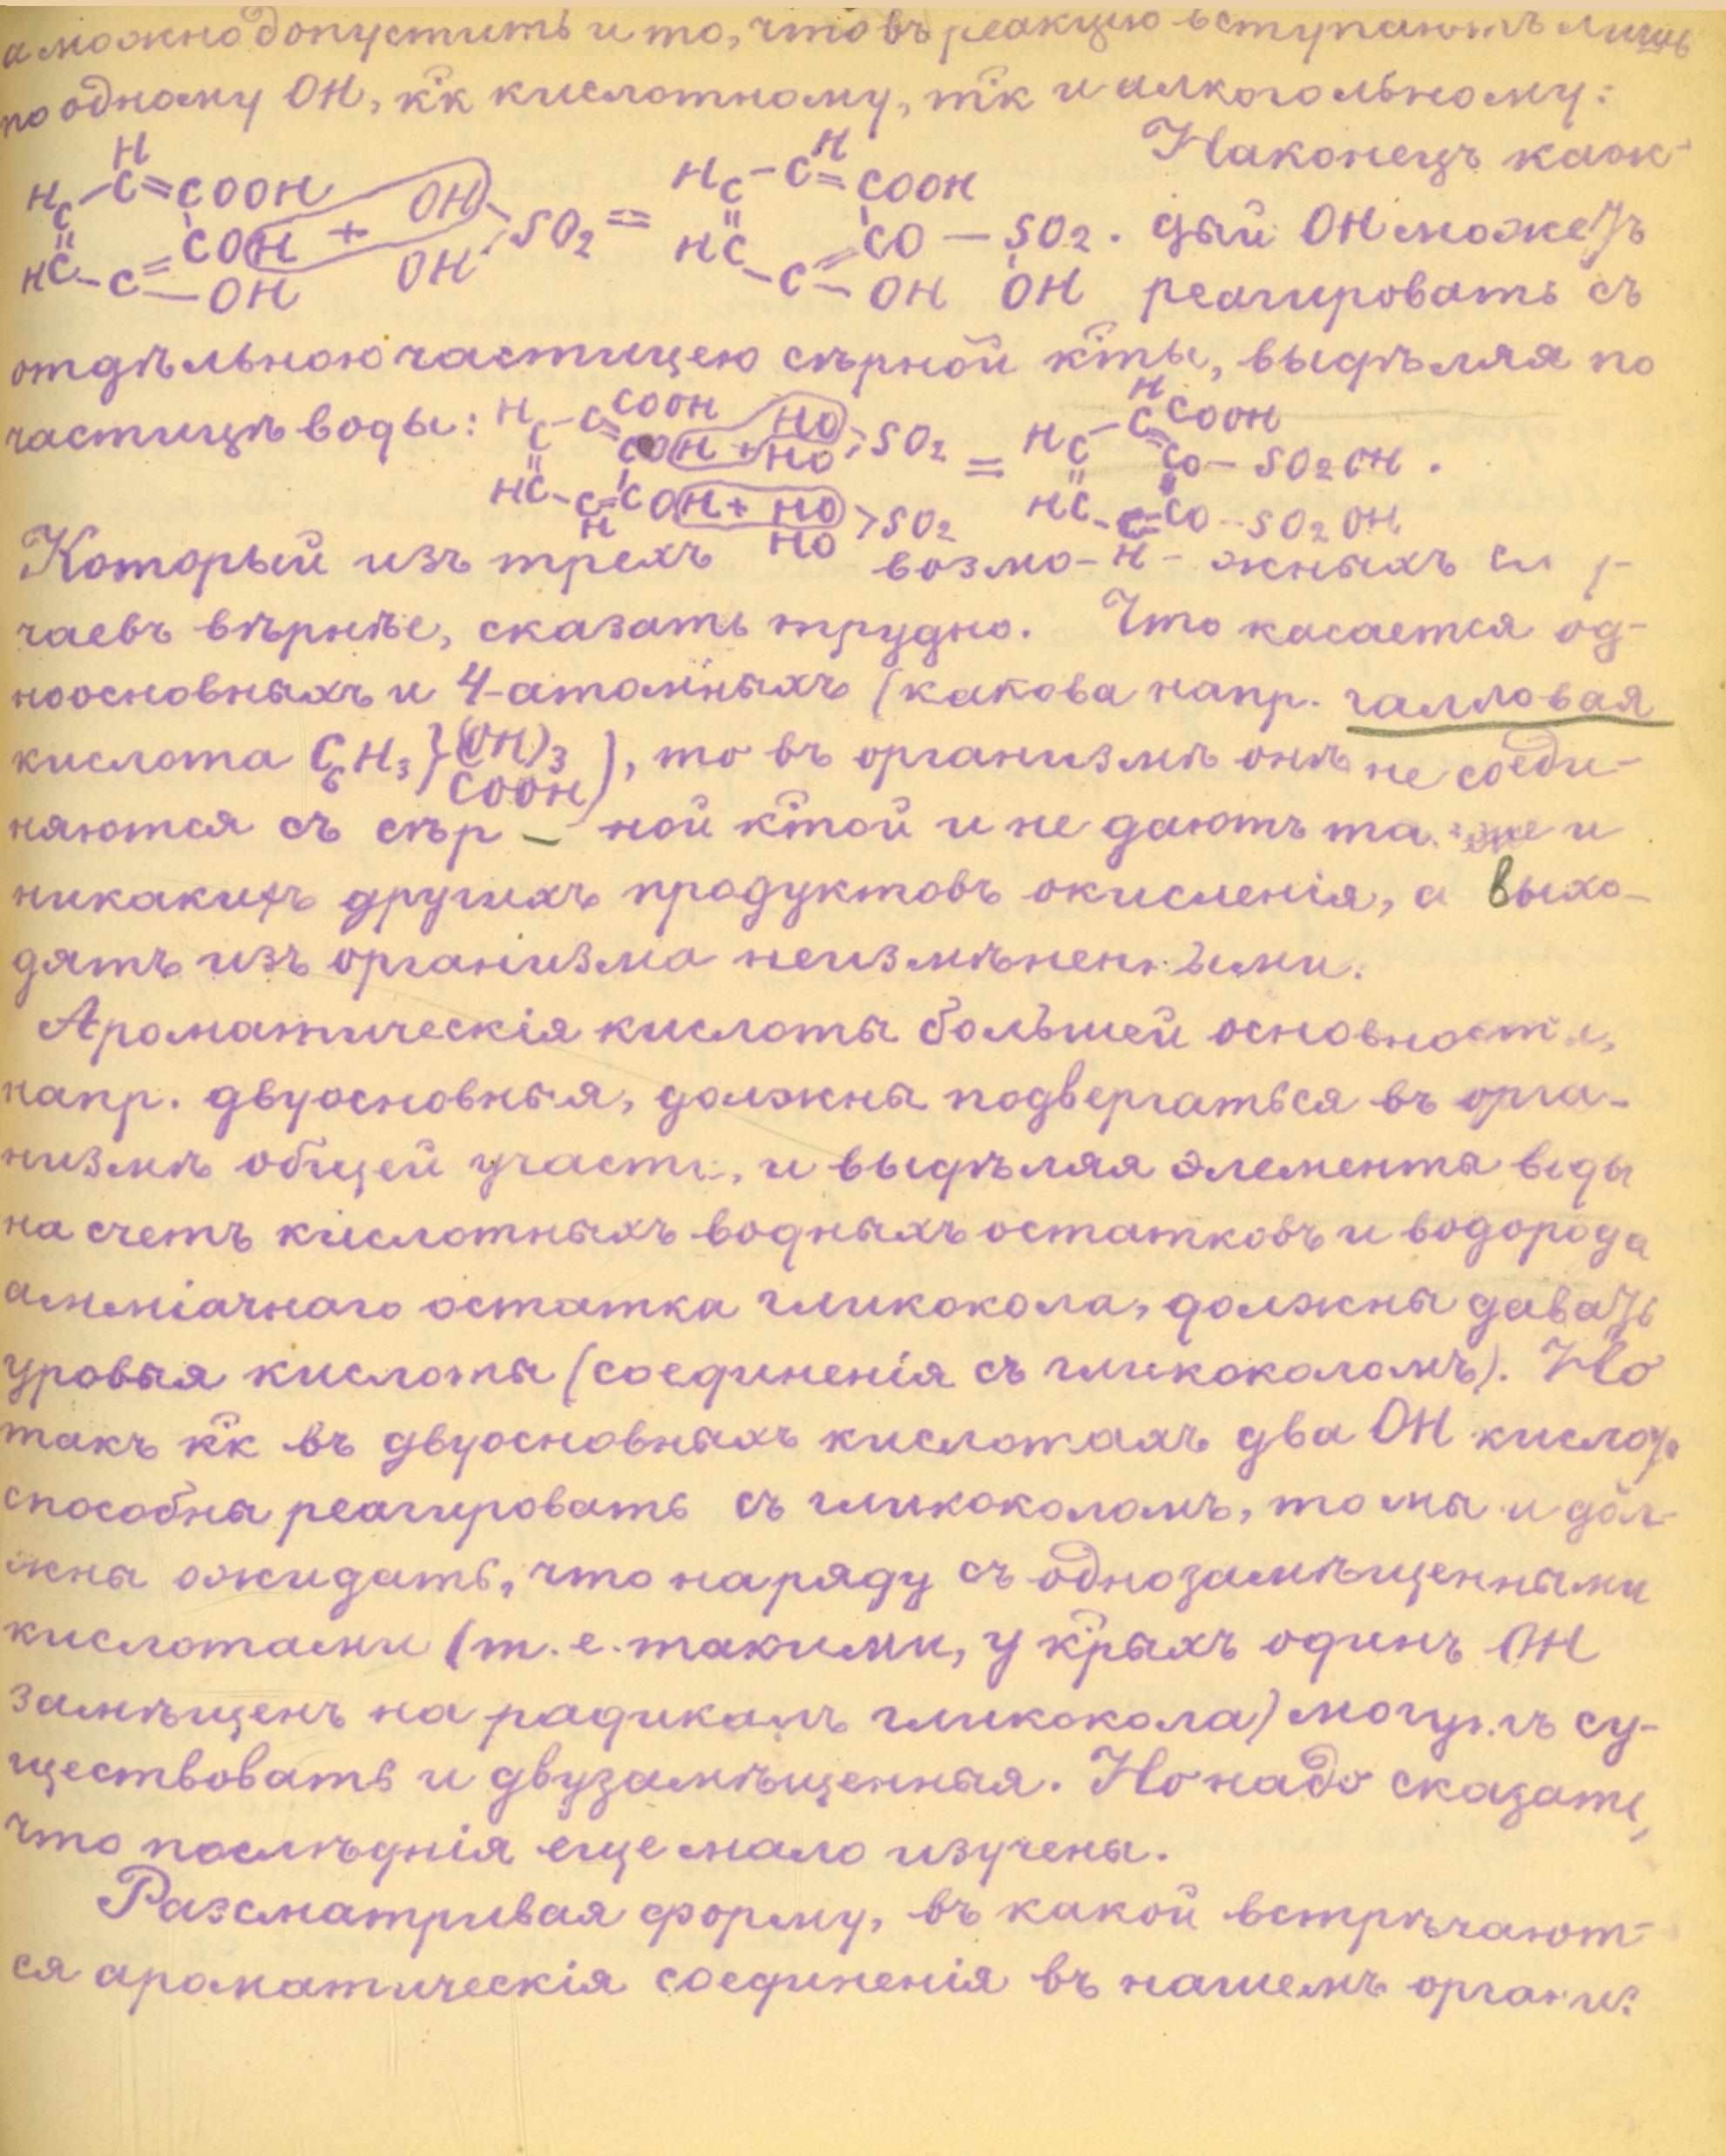 а можно допустить и то, что въ реакцію вступаютъ лишь
по одному ОН, к̈к кислотному, т̈к и алкогольному:
Наконецъ каж-
H
H C - C = COOH
COH + OH
SO2 =
HC - C - OH OH
H C - C H = COOH
HC CO — SO2.
C - OH OH
дый ОН можетъ
реагировать съ
отдѣльною частицею сѣрной к̈ты, выдѣляя по
частицѣ воды: H C - C COOH HO
COH + HO > SO2 =
HC - C = COH + HO > SO2
H HO
H
H C - C COOH
CO - SO2OH.
HC - C = CO - SO2OH
H
Который изъ трехъ возмо- жныхъ слу-
чаевъ вѣрнѣе, сказать трудно. Что касается од-
ноосновныхъ и 4-атомныхъ (какова напр. галловая
кислота C6H3}(OH)3 COOH), то въ организмѣ онѣ не соеди-
няются съ сѣр – ной к̈той и не даютъ также и
никакихъ другихъ продуктовъ окисленія, а выхо-
дятъ изъ организма неизмѣненными.
Ароматическія кислоты большей основности,
напр. двуосновныя, должны подвергаться въ орга-
низмѣ общей участи, и выдѣляя элементы воды
на счетъ кислотныхъ водныхъ остатковъ и водорода
амміачнаго остатка гликокола, должны давать
уровыя кислоты (соединенія съ гликоколомъ). Но
такъ к̈к въ двуосновныхъ кислотахъ два ОН кислот.
способны реагировать съ гликоколомъ, то мы и дол-
жны ожидать, что наряду съ однозамѣщенными
кислотами (т.е. такими, у к̈рыхъ одинъ ОН
замѣщенъ на радикалъ гликокола) могутъ су-
ществовать и двузамѣщенныя. Но надо сказать,
что послѣднія еще мало изучены.
Разсматривая форму, въ какой встрѣчают-
ся ароматическія соединенія въ нашемъ органи-